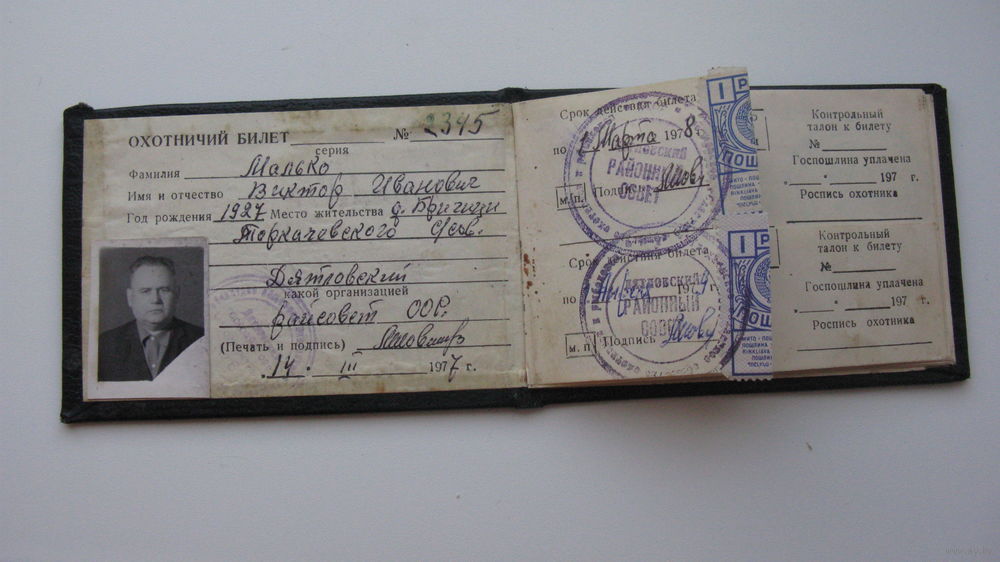 ОХОТНИЧИЙ БИЛЕТ № 2345
серия
Фамилия Малько
Имя и отчество Виктор Иванович
Год рождения 1927 Место жительства д.
Торкачевского с/сов.
Дятловский
какой организацией
райсовет ООР
(Печать и подпись)
14. III 1977 г.
Срок действия билета
по Марта 1978
РАЙОННЫЙ
СОВЕТ
М. П. Подпись
Срок действия билета
по 1979
ДЯТЛОВСКИЙ
РАЙОННЫЙ
СОВЕТ
М. П. Подпись
1 Р
ПОШ
1 Р
ПОШ
Контрольный
талон к билету
№
Госпошлина уплачена
197 г.
Роспись охотника
Контрольный
талон к билету
№
Госпошлина уплачена
197 г.
Роспись охотника